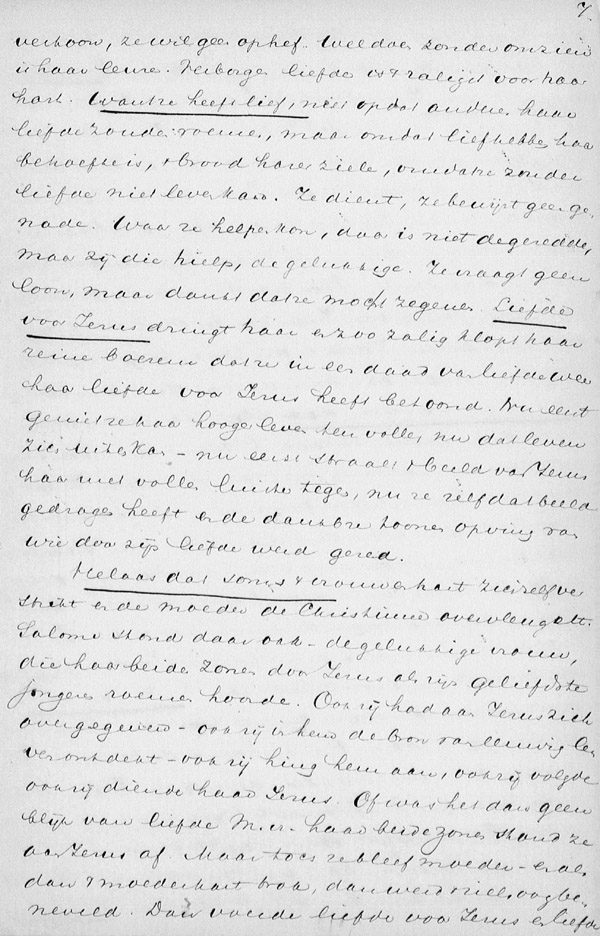 7.
vertoon, ze wil geen ophef. Wel doen zonder omzien
is haar leuze. Verborgen liefde is 't zaligst voor haar
hart. Want ze heeft lief, niet opdat andere haar
liefde zouden roemen, maar omdat liefhebben haar
behoefte is, 't brood harer ziele, omdat ze zonder
liefde niet leven kan. Ze dient, ze bewijst geen ge-
nade. Waar ze helpen kon, daar is niet de geredde,
maar zij die hielp, de gelukkige. Ze vraagt geen
loon, maar dankt dat ze mocht zegenen. Liefde
voor Jezus dringt haar en zoo zalig klopt haar
reine boezem dat ze in een daad van liefde weer
haar liefde voor Jezus heeft betoond. Nu eerst
geniet ze haar hooger leven ten volle, nu dat leven
zich uiten kan - nu eerst straalt 't beeld van Jezus
haar met volle luister tegen, nu ze zelf dat beeld
gedragen heeft en de dankbre toonen opving van
wie door zijn liefde werd gered.
Helaas dat soms 't vrouwenhart zich zelf ver
strikt en de moeder de Christinne overvleugelt.
Salome stond daar ook - de gelukkige vrouw,
die haar beide zonen door Jezus als zijn geliefdste
jongeren roemen hoorde. Ook zij had aan Jezus zich
overgegeven - ook zij in hem de bron van eeuwig le-
ven ontdekt - ook zij hing hem aan, ook zij volgde
ook zij diende haar Jezus. Of was het dan geen
blijk van liefde M. vr. haar beide zonen stond ze
aan Jezus af. Maar toch ze bleef moeder - en als
dan 't moederhart trok, dan werd 't zielsoog be-
neveld. Dan voerde liefde voor Jezus en liefde